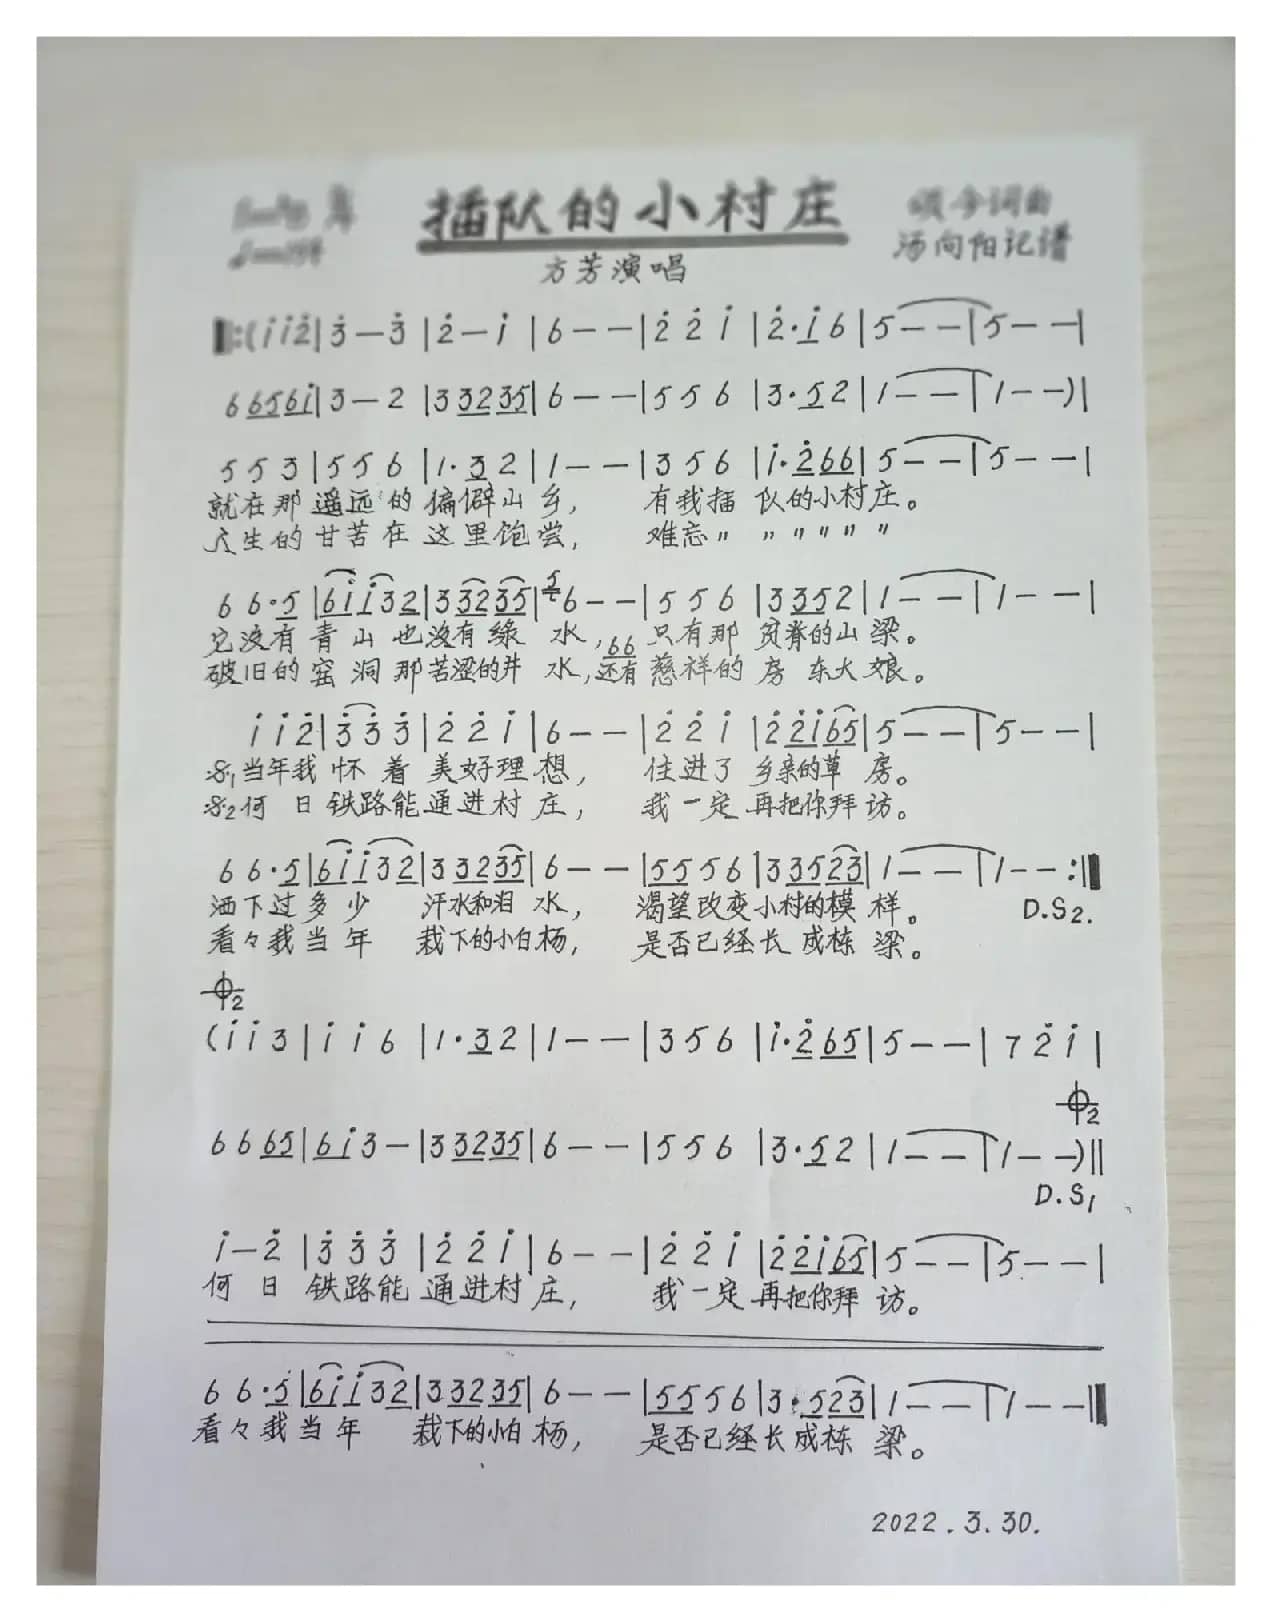 插队的小村庄
颂今词曲
汤向阳记谱
方芳演唱
‖:(i̇ i̇ 2̇|3̇—3̇|2̇—i̇|6——|2̇ 2̇ i̇|2̇·i̇ 6|5——|5——|
6 6 5 6 i̇|3—2|3 3 2 3 5|6——|5 5 6|3·5 2|1——|1——)|
5 5 3|5 5 6|1·3 2|1——|3 5 6|i̇·2̇ 6 6|5——|5——|
就在那遥远的偏僻山乡, 有我插队的小村庄。
人生的甘苦在这里饱尝, 难忘〃〃〃〃〃〃
6 6·5|6 i̇ i̇ 3 2|3 3 2 3 5|5 6——|5 5 6|3 3 5 2|1——|1——|
它没有青山也没有绿水, 只有那贫脊的山梁。
66
破旧的窑洞那苦涩的井水,还有慈祥的房东大娘。
i̇ i̇ 2̇|3̇ 3̇ 3̇|2̇ 2̇ i̇|6——|2̇ 2̇ i̇|2̇ 2̇ i̇ 6 5|5——|5——|
𝄋1当年我怀着美好理想, 住进了乡亲的草房。
𝄋2何日铁路能通进村庄, 我一定再把你拜访。
6 6·5|6 i̇ i̇ 3 2|3 3 2 3 5|6——|5 5 5 6|3 3 5 2 3|1——|1——:‖
洒下过多少汗水和泪水, 渴望改变小村的模样。 D.S2.
看々我当年栽下的小白杨, 是否已经长成栋梁。
𝄌2
(i̇ i̇ 3|i̇ i̇ 6|1·3 2|1——|3 5 6|i̇·2̇ 6 5|5——|7 2̇ i̇|
𝄌2
6 6 6 5|6 i̇ 3—|3 3 2 3 5|6——|5 5 6|3·5 2|1——|1——)‖
D.S1
i̇—2̇|3̇ 3̇ 3̇|2̇ 2̇ i̇|6——|2̇ 2̇ i̇|2̇ 2̇ i̇ 6 5|5——|5——|
何日铁路能通进村庄, 我一定再把你拜访。
6 6·5|6 i̇ i̇ 3 2|3 3 2 3 5|6——|5 5 5 6|3·5 2 3|1——|1——‖
看々我当年栽下的小白杨, 是否已经长成栋梁。
2022.3.30.